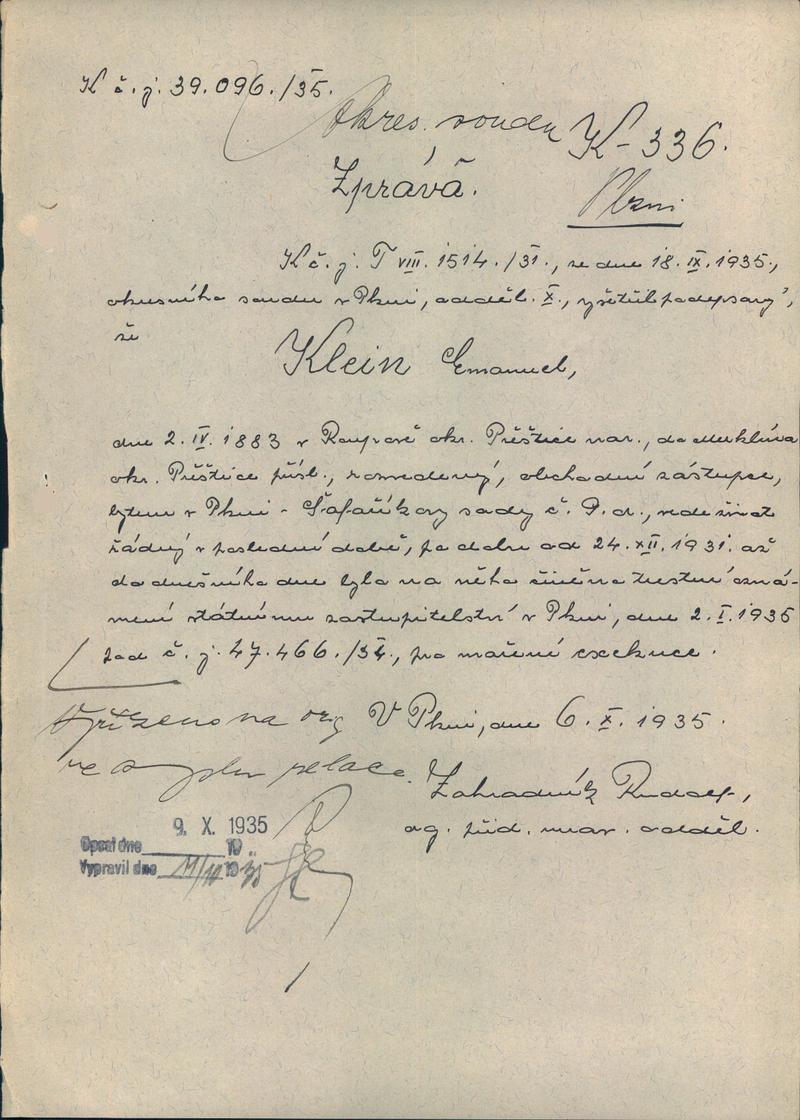 K č. j. 39.096./35.
Okres. soudu K-336.
Zpráva.
Plzni
K č. j. T VIII. 1514./31., ze dne 18. IX. 1935.,
okresního soudu v Plzni, odděl. X., zjistil podepsaný,
že
Klein Emanuel,
dne 2. IV. 1883 v Roupově okr. Přeštice nar., do Merklína
okr. Přeštice přísl., rozvedený, obchodní zástupce,
bytem v Plzni - Šafaříkovy sady č. 9. a., vede život
řádný v poslední době, po dobu od 24. XII. 1931. až
do dnešního dne byla na něho učiněna trestní ozná-
mení státnímu zastupitelství v Plzni, dne 2. I. 1935
pod č. j. 47.466./34., pro maření exekuce.
Vyřízeno na org V Plzni, dne 6. X. 1935.
ve smyslu relace.
Zahradník Rudolf,
ag. přid. odděl.
9. X. 1935
Opsal dne 19
Vypravil dne 11/10 1935